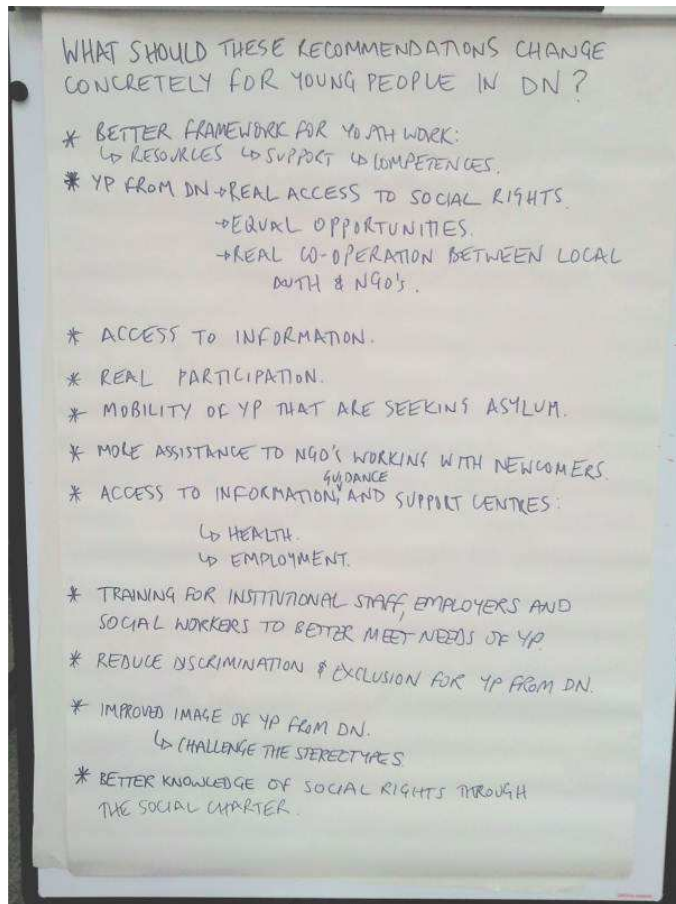 WHAT SHOULD THESE RECOMMENDATIONS CHANGE
CONCRETELY FOR YOUNG PEOPLE IN DN?
* BETTER FRAMEWORK FOR YOUTH WORK:
↳ RESOURCES ↳ SUPPORT ↳ COMPETENCES.
* YP FROM DN → REAL ACCESS TO SOCIAL RIGHTS.
→ EQUAL OPPORTUNITIES.
→ REAL CO-OPERATION BETWEEN LOCAL
AUTH & NGO'S.
* ACCESS TO INFORMATION.
* REAL PARTICIPATION.
* MOBILITY OF YP THAT ARE SEEKING ASYLUM.
* MORE ASSISTANCE TO NGO'S WORKING WITH NEWCOMERS.
* ACCESS TO INFORMATION, GUIDANCE AND SUPPORT CENTRES:
↳ HEALTH.
↳ EMPLOYMENT.
* TRAINING FOR INSTITUTIONAL STAFF, EMPLOYERS AND
SOCIAL WORKERS TO BETTER MEET NEEDS OF YP.
* REDUCE DISCRIMINATION & EXCLUSION FOR YP FROM DN.
* IMPROVED IMAGE OF YP FROM DN.
↳ CHALLENGE THE STEREOTYPES.
* BETTER KNOWLEDGE OF SOCIAL RIGHTS THROUGH
THE SOCIAL CHARTER.